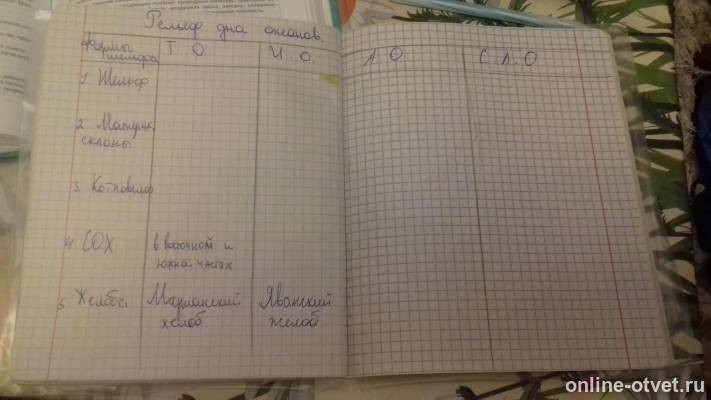 Рельеф дна океанов
Формы рельефа Т.О. И.О. А.О. С.Л.О
1 Шельф
2 Материк. склоны
3 Котловины
4 СОХ в восточной и южной частях
5 Желоба Марианский желоб Яванский желоб
online-otvet.ru